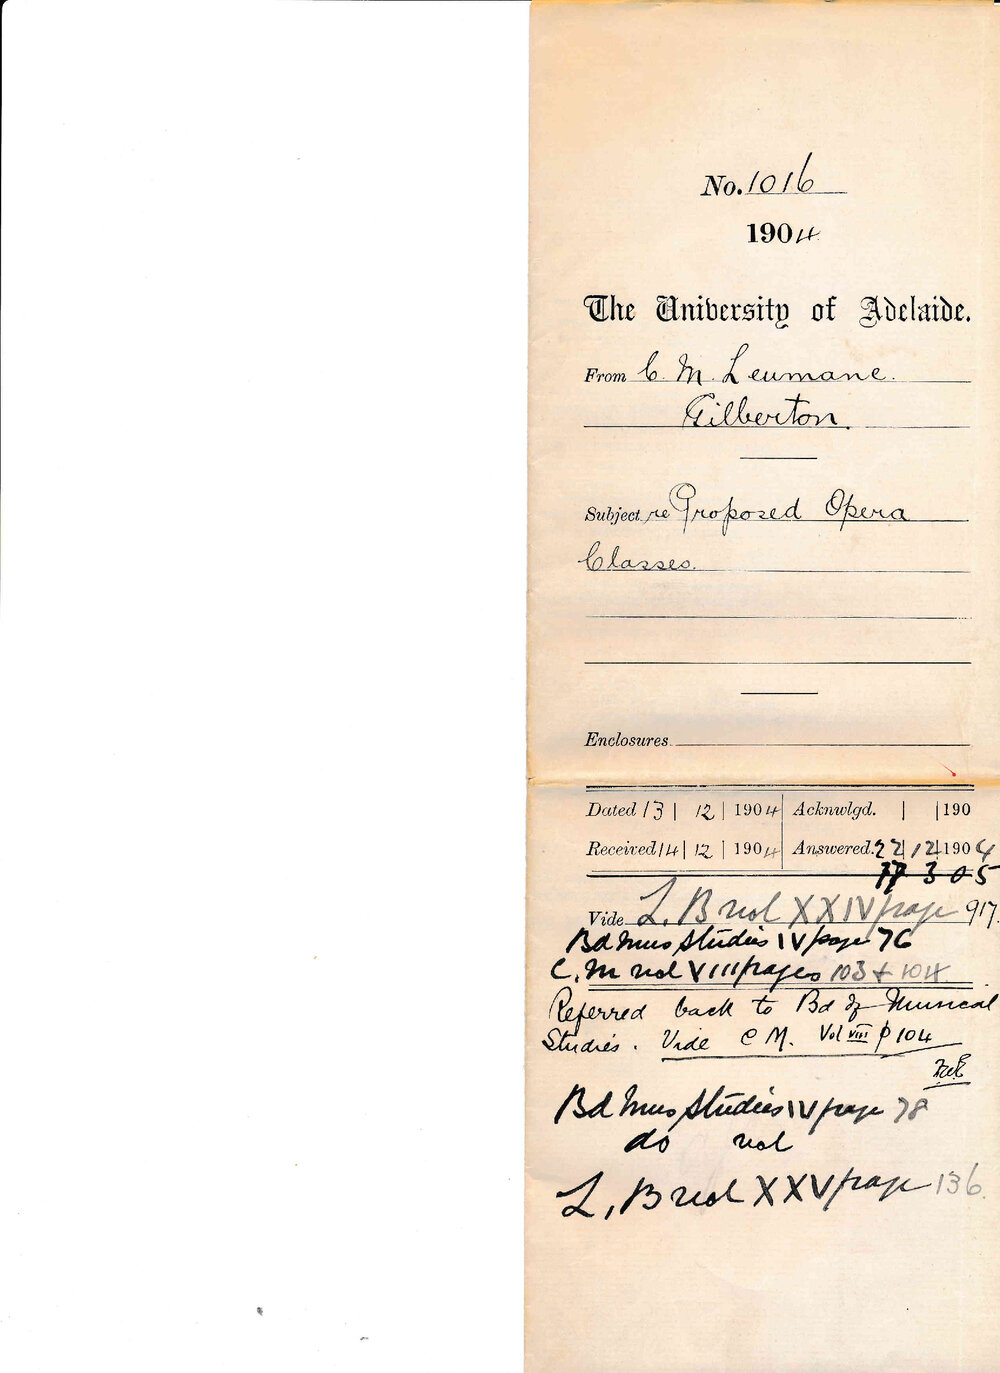 No. 1016
1904
The University of Adelaide.
From C. M. Leumane.
Gilberton.
Subject re Proposed Opera
Classes.
Enclosures
Dated 13 | 12 | 1904 Acknwlgd. | | 190
Received 14 | 12 | 1904 Answered. 22 | 12 | 1904
17 3 05
Vide L. B vol XXIV page 917.
Bd Mus Studies IV page 76
C. M vol VIII pages 103 & 104
Referred back to Bd of Musical
Studies. Vide C M. Vol viii p 104
Bd Mus Studies IV page 78
do vol
L. B vol XXV page 136.